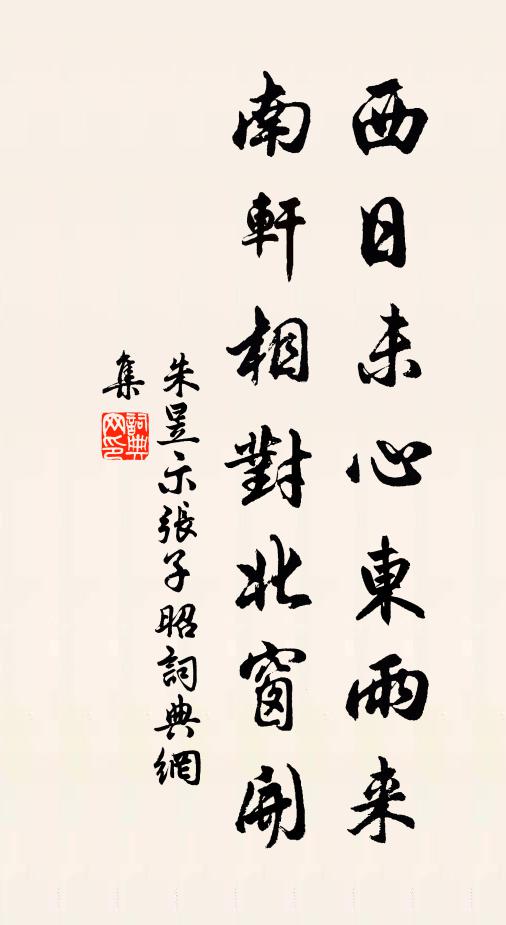 西日未心東雨来
南軒相對北窗開
朱昱示張子昭詞典網
集
詞典
网印